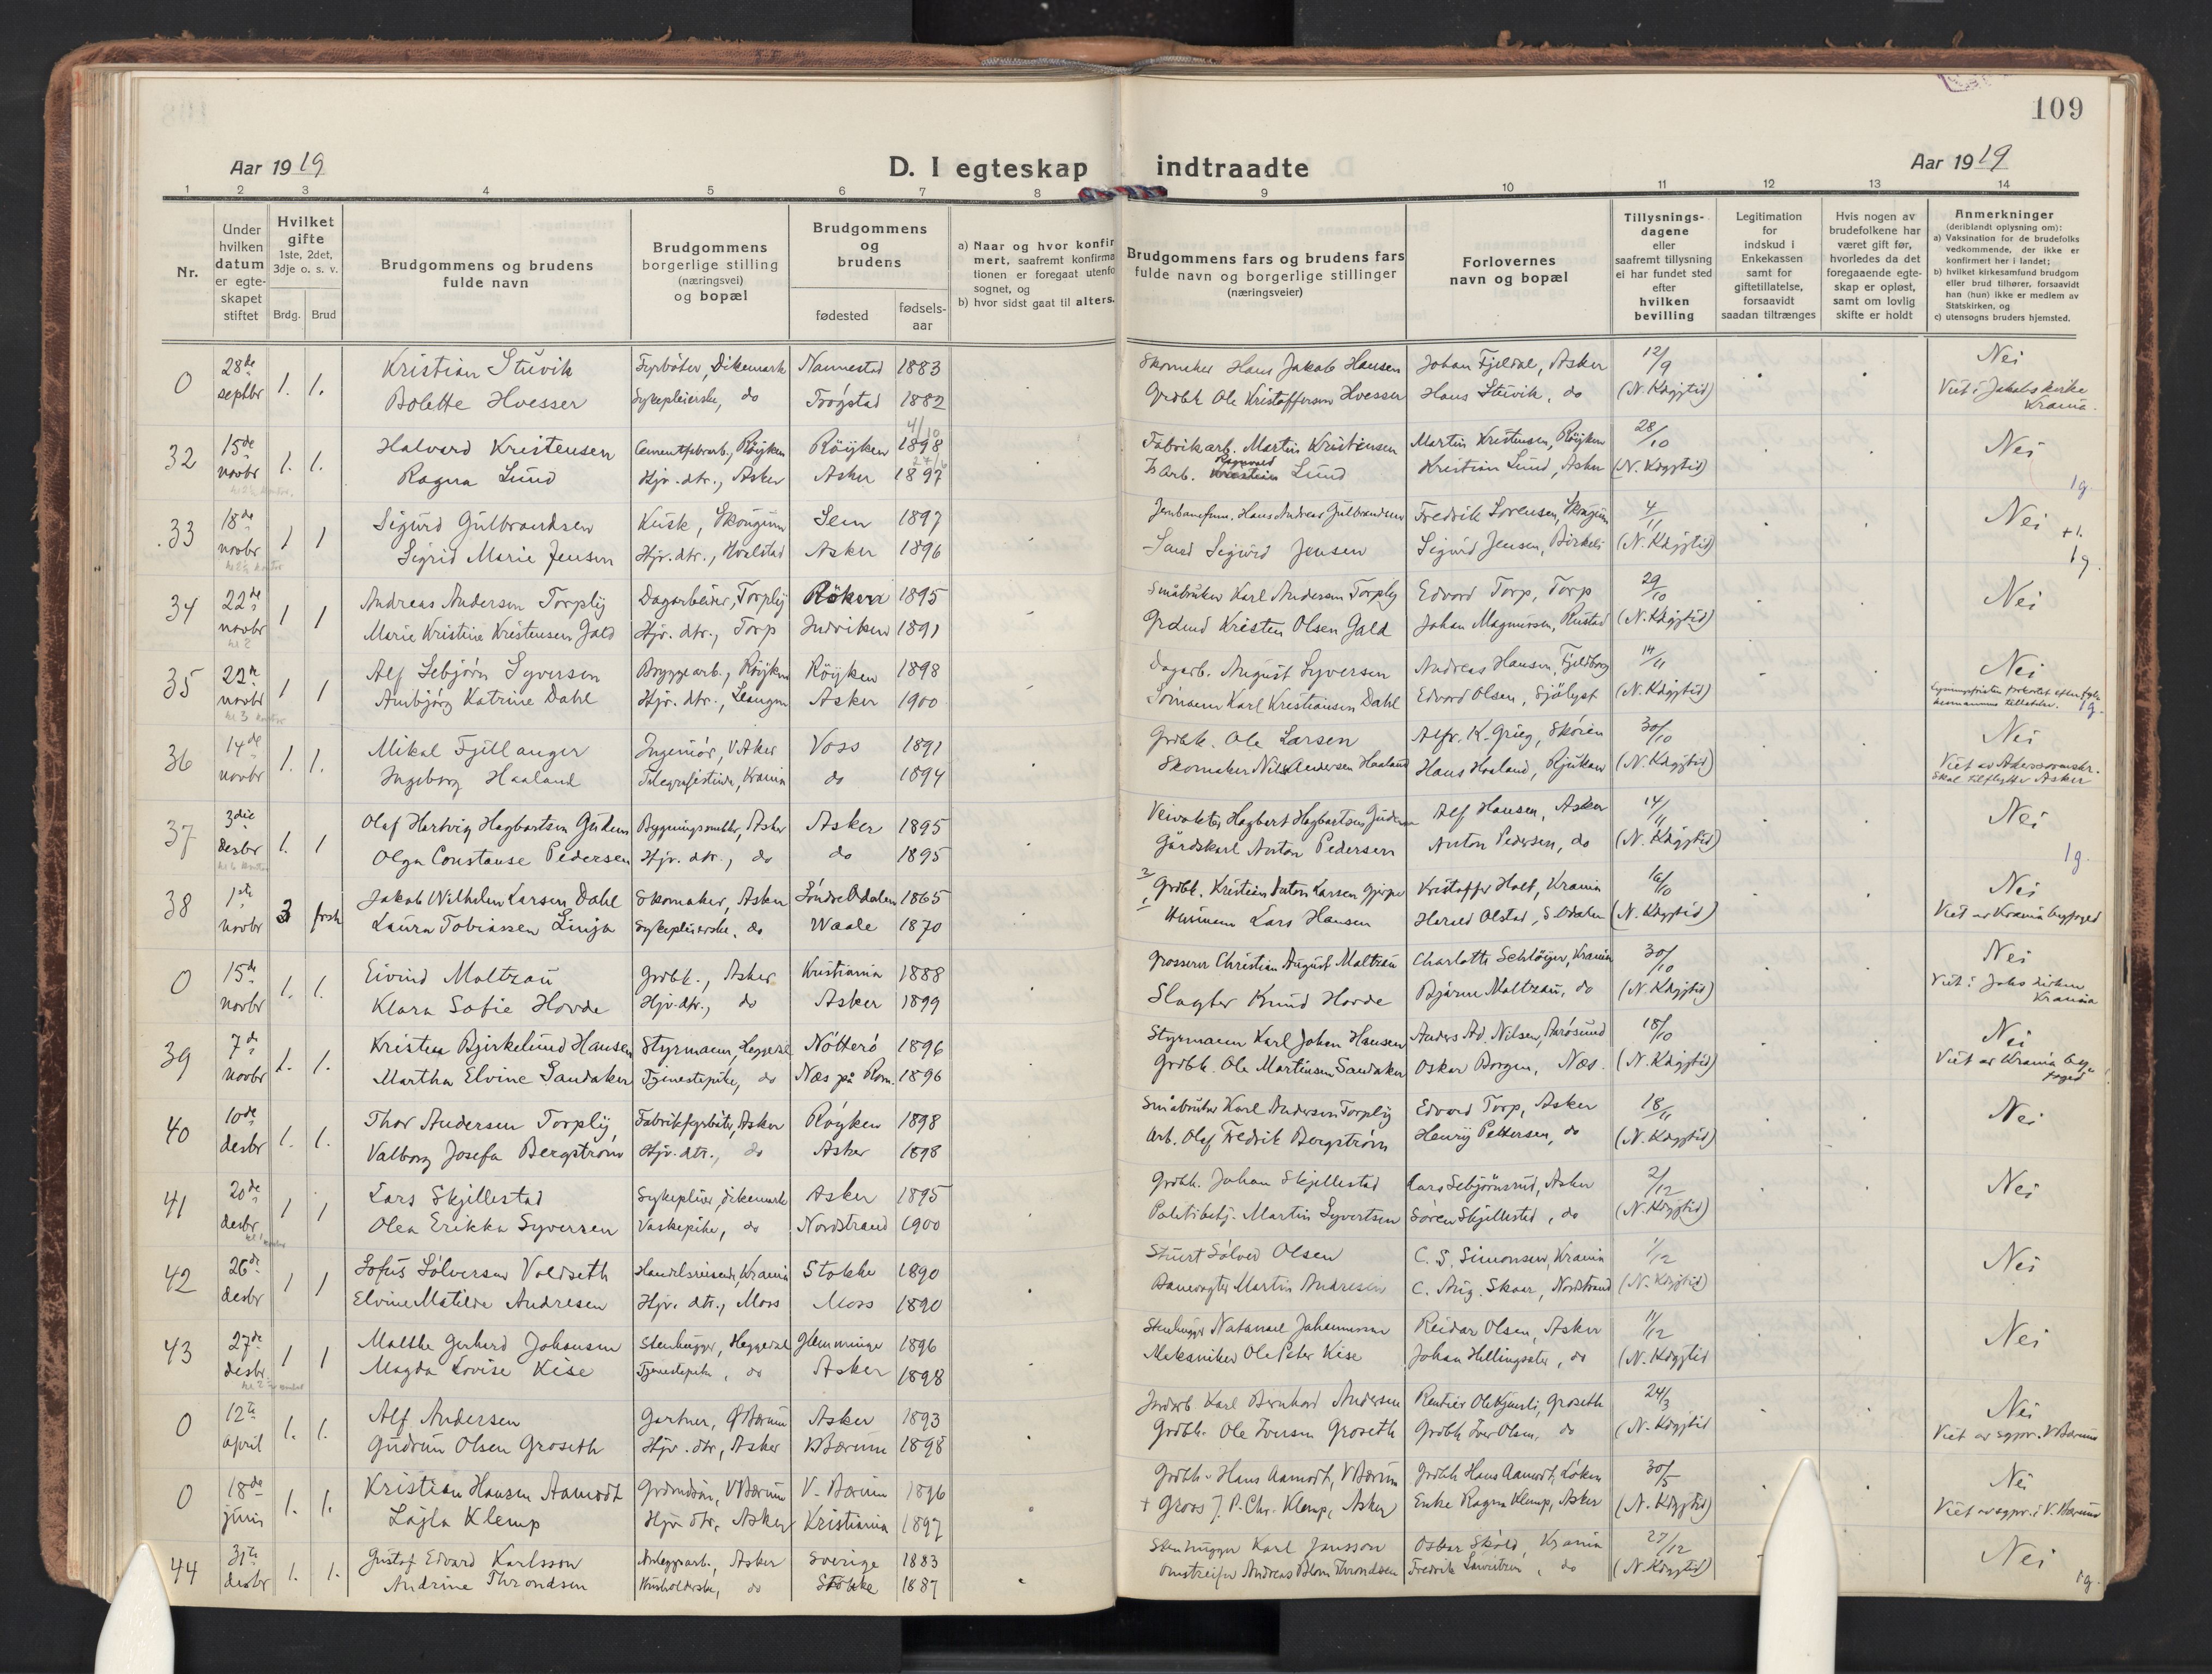 109
Aar 1919
D. I egteskap indtraadte
Aar 1919
1 2 3 4 5 6 7 8 9 10 11 12 13 14
Nr.
Under hvilken datum er egteskapet stiftet
Hvilket gifte 1ste, 2det, 3dje o. s. v.
Brdg. Brud
Brudgommens og brudens fulde navn
Brudgommens borgerlige stilling (næringsvei) og bopæl
Brudgommens og brudens
fødested
fødsels-aar
a) Naar og hvor konfirmert, saafremt konfirmationen er foregaaet utenfo sognet, og
b) hvor sidst gaat til alters.
Brudgommens fars og brudens fars fulde navn og borgerlige stillinger (næringsveier)
Forlovernes navn og bopæl
Tillysnings-dagene eller saafremt tillysning ei har fundet sted efter hvilken bevilling
Legitimation for indskud i Enkekassen samt for giftetillatelse, forsaavidt saadan tiltrænges
Hvis nogen av brudefolkene har været gift før, hvorledes da det foregaaende egteskap er opløst, samt om lovlig skifte er holdt
Anmerkninger (deriblandt oplysning om):
a) Vaksination for de brudefolks vedkommende, der ikke er konfirmert her i landet;
b) hvilket kirkesamfund brudgom eller brud tilhører, forsaavidt han (hun) ikke er medlem av Statskirken, og
c) utensogns bruders hjemsted.
0 28de 1. 1. Kristian Stuvik Fyrbøter, Dikemark Nannestad 1883 Skomaker Hans Jakob Hansen Johan Fjeldal, Asker 12/9 Nei
septbr Bolette Hvesser Sykepleierske, do Trøgstad 1882 Grdbk Ole Kristoffersen Hvesser Hans Stuvik, do (N. Kdgjtid) Viet i Jakobs kirke Krania.
32 15de 1. 1. Halvard Kristensen Cementfabrarb., Røyken Røyken 4/10 1898 Fabrikarb. Martin Kristensen Martin Kristensen, Røyken 28/10 Nei
novbr Ragna Lund Hjv. dtr., Asker Asker 1897 Isarb. Ragnvald Lund Kristian Lund, Asker (N. Kdgjtid) 1g.
33 18de 1 1 Sigurd Gulbrandsen Kusk, Skougum Sem 1897 Jernbanefunk. Hans Andreas Gulbrandsen Fredrik Sørensen, Skougum 4/11 Nei
novbr Sigrid Marie Jensen Hjv. dtr., Hvalstad Asker 1896 Sigurd Jensen Sigurd Jensen, Birkeli (N. Kdgjtid) 1g.
34 22de 1 1 Andreas Andersen Torply Dagarbeider, Torply Røken 1895 Småbruker Karl Andersen Torply Edvard Torp, Torp 29/10 Nei
novbr Marie Kristine Kristensen Gald Hjv. dtr., Torp Indviken 1891 Grdmd Kristen Olsen Gald Johan Magnussen, Rustad (N. Kdgjtid)
35 22de 1 1 Alf Sebjørn Syversen Bryggearb., Røyken Røyken 1898 Dagarb. August Syversen Andreas Hansen, Fjeldborg 14/11 Nei
novbr Annbjørg Katrine Dahl Hjv. dtr., Leangen Asker 1900 Sømann Karl Kristiansen Dahl Edvard Olsen, Sjølyst (N. Kdgjtid) 1g.
36 14de 1. 1. Mikal Fjellanger Ingeniør, V. Aker Voss 1891 Grdbk. Ole Larsen Asfr. K. Grieg, Skøien 30/10 Nei
novbr Ingeborg Haaland Telegrafistinde, Krania do 1894 Skomaker Nils Andersen Haaland Hans Haaland, Rjukan (N. Kdgjtid) Skal tilflytte Asker
37 3die 1. 1 Olaf Hartvig Hagbartsen Gudem Bygningssnekker, Asker Asker 1895 Veivokter Hagbert Hagbartsen Gudem Alf Hansen, Asker 14/11 Nei
desbr Olga Constanse Pedersen Hjv. dtr., do do 1895 Gårdskarl Anton Pedersen Anton Pedersen, do (N. Kdgjtid) 1g.
38 1ste 3 frsk Jakob Wilhelm Larsen Dahl Skomaker, Asker Søndre Odalen 1865 Grdbk. Kristian Anton Larsen Kristoffer Holt, Krania 16/10 Nei
novbr Laura Tobiassen Linja Sykepleierske, do Waale 1870 Husmann Lars Hansen Harald Olstad, S. Odalen (N. Kdgjtid) Viet av Krania byfoged
0 15de 1. 1. Eivind Maltzau Grdbk., Asker Kristiania 1888 Grosserer Christian August Maltzau Charlotte Schlöger, Krania 30/10 Nei
novbr Klara Sofie Hovde Hjv. dtr., do Asker 1899 Slagter Knud Hovde Bjarne Maltzau, do (N. Kdgjtid) Viet i Johs kirken Krania
39 7de 1. 1. Kristian Bjerkelund Hansen Styrmann, Heggedal Nøtterø 1896 Styrmann Karl Johan Hansen Anders Ad. Nilsen, Årøsund 18/10 Nei
novbr Martha Elvine Sandaker Tjenestepike, do Næs på Rom. 1896 Grdbk. Ole Martinsen Sandaker Oskar Borgen, Næs. (N. Kdgjtid) Viet av Krania byfoged
40 10de 1. 1. Thor Andersen Torply Fabrikfyrbøter, Asker Røyken 1898 Småbruker Karl Andersen Torply Edvard Torp, Asker 18/11 Nei
desbr Valborg Josefa Bergstrøm Hjv. dtr., do Asker 1898 Arb. Olaf Fredrik Bergstrøm Henry Pettersen, do (N. Kdgjtid)
41 20de 1 1 Lars Skjellestad Sykepleier, Dikemark Asker 1895 Grdbk. Johan Skjellestad Lars Sebjørnsrud, Asker 2/12 Nei
desbr Olea Erikka Syversen Vaskepike, do Nordstrand 1900 Politibetj. Martin Syvertsen Søren Skjellestad, do (N. Kdgjtid)
42 26de 1 1 Sofus Sølversen Voldseth Handelsreisende, Krania Stokke 1890 Stuert Sølver Olsen C. S. Simonsen, Krania 1/12 Nei
desbr Elvine Matilde Andresen Hjv. dtr., Moss Moss 1890 Banevogter Martin Andresen C. Aug. Skaar, Nordstrand (N. Kdgjtid)
43 27de 1 1 Malthe Gerhard Johansen Stenhugger, Heggedal Glemminge 1896 Stenhugger Natanael Johannessen Reidar Olsen, Asker 11/12 Nei
desbr Magda Lovise Kise Tjenestepike, do Asker 1898 Ole Peter Kise Johan Hellingsæter, do (N. Kdgjtid
0 12te 1. 1. Alf Andersen Gartner, Ø. Bærum Asker 1893 Jordarb Karl Bernhard Andersen Rentier Ole Kjensli, Groseth 24/3 Nei
april Gudrun Olsen Groseth Hjv. dtr, Asker V. Bærum 1898 Grdbk. Ole Iversen Groseth Grdbk Iver Olsen, do (N. Kdgjtid Viet av sgpr. V. Bærum
0 18de 1. 1. Kristian Hansen Aamodt Grdmdsøn, V Bærum V. Bærum 1896 Grdbk. Hans Aamodt, V Bærum Grdbk Hans Aamodt, Løken 30/5 Nei
juni Lajla Klemp Hjv. dtr, Asker Kristiania 1897 + Gross J. P. Chr. Klemp, Asker Enke Ragna Klemp, Asker (N. Kdgjtid) Viet av sgpr. i V. Bærum
44 31te 1. 1. Gustaf Edvard Karlsson Anleggsarb., Asker Sverige 1883 Stenhugger Karl Jansson Oskar Sköld, Krania 27/12 Nei
desbr Andrine Throndsen Husholderske, do Stokke 1887 Omstreifer Andreas Blom Throndsen Fredrik, do (N. Kdgjtid) 1g.